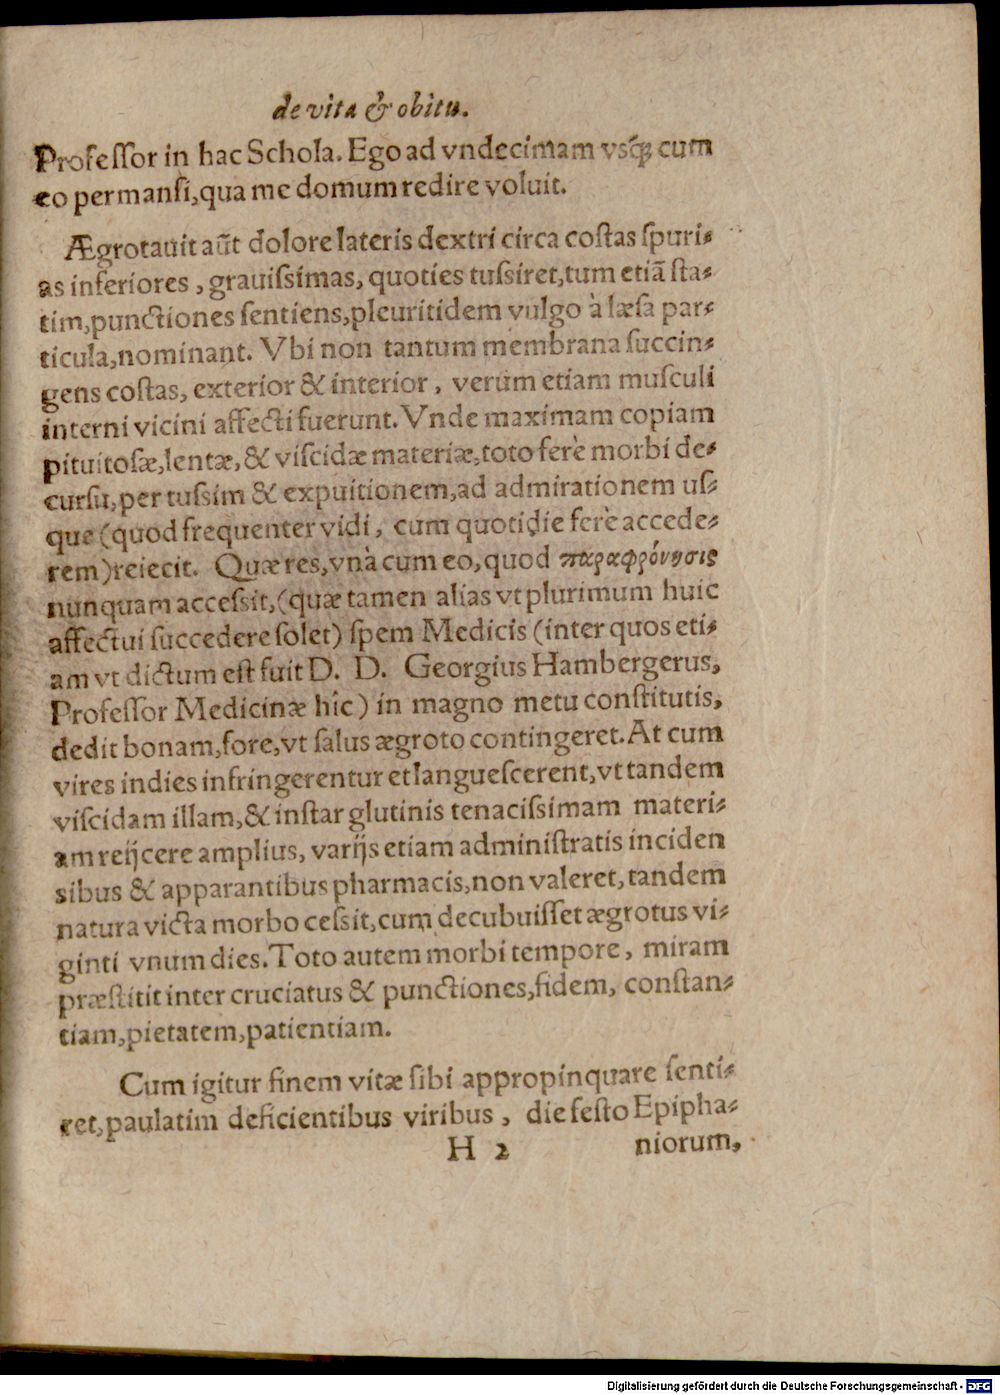 de vita & obitu.
Professor in hac Schola. Ego ad vndecimam vsq́ꝫ cum
eo permansi, qua me domum redire voluit.
Ægrotauit aũt dolore lateris dextri circa costas spuri-
as inferiores, grauissimas, quoties tussiret, tum etiã sta-
tim, punctiones sentiens, pleuritidem vulgo à læsa par-
ticula, nominant. Vbi non tantum membrana succin-
gens costas, exterior & interior, verum etiam musculi
interni vicini affecti fuerunt. Vnde maximam copiam
pituitosæ, lentæ, & viscidæ materiæ, toto ferè morbi de-
cursu, per tussim & expuitionem, ad admirationem us-
que (quod frequenter vidi, cum quotidie ferè accede-
rem) reiecit. Quæ res, vnà cum eo, quod παραφρόνησις
nunquam accessit, (quæ tamen alias vt plurimum huic
affectui succedere solet) spem Medicis (inter quos eti-
am vt dictum est fuit D. D. Georgius Hambergerus,
Professor Medicinæ hîc) in magno metu constitutis,
dedit bonam, fore, vt salus ægroto contingeret. At cum
vires indies infringerentur et languescerent, vt tandem
viscidam illam, & instar glutinis tenacissimam materi-
am reijcere amplius, varijs etiam administratis inciden
sibus & apparantibus pharmacis, non valeret, tandem
natura victa morbo cessit, cum decubuisset ægrotus vi-
ginti vnum dies. Toto autem morbi tempore, miram
præstitit inter cruciatus & punctiones, fidem, constan-
tiam, pietatem, patientiam.
Cum igitur finem vitæ sibi appropinquare senti-
ret, paulatim deficientibus viribus, die festo Epipha-
H 2 niorum,
Digitalisierung gefördert durch die Deutsche Forschungsgemeinschaft - DFG